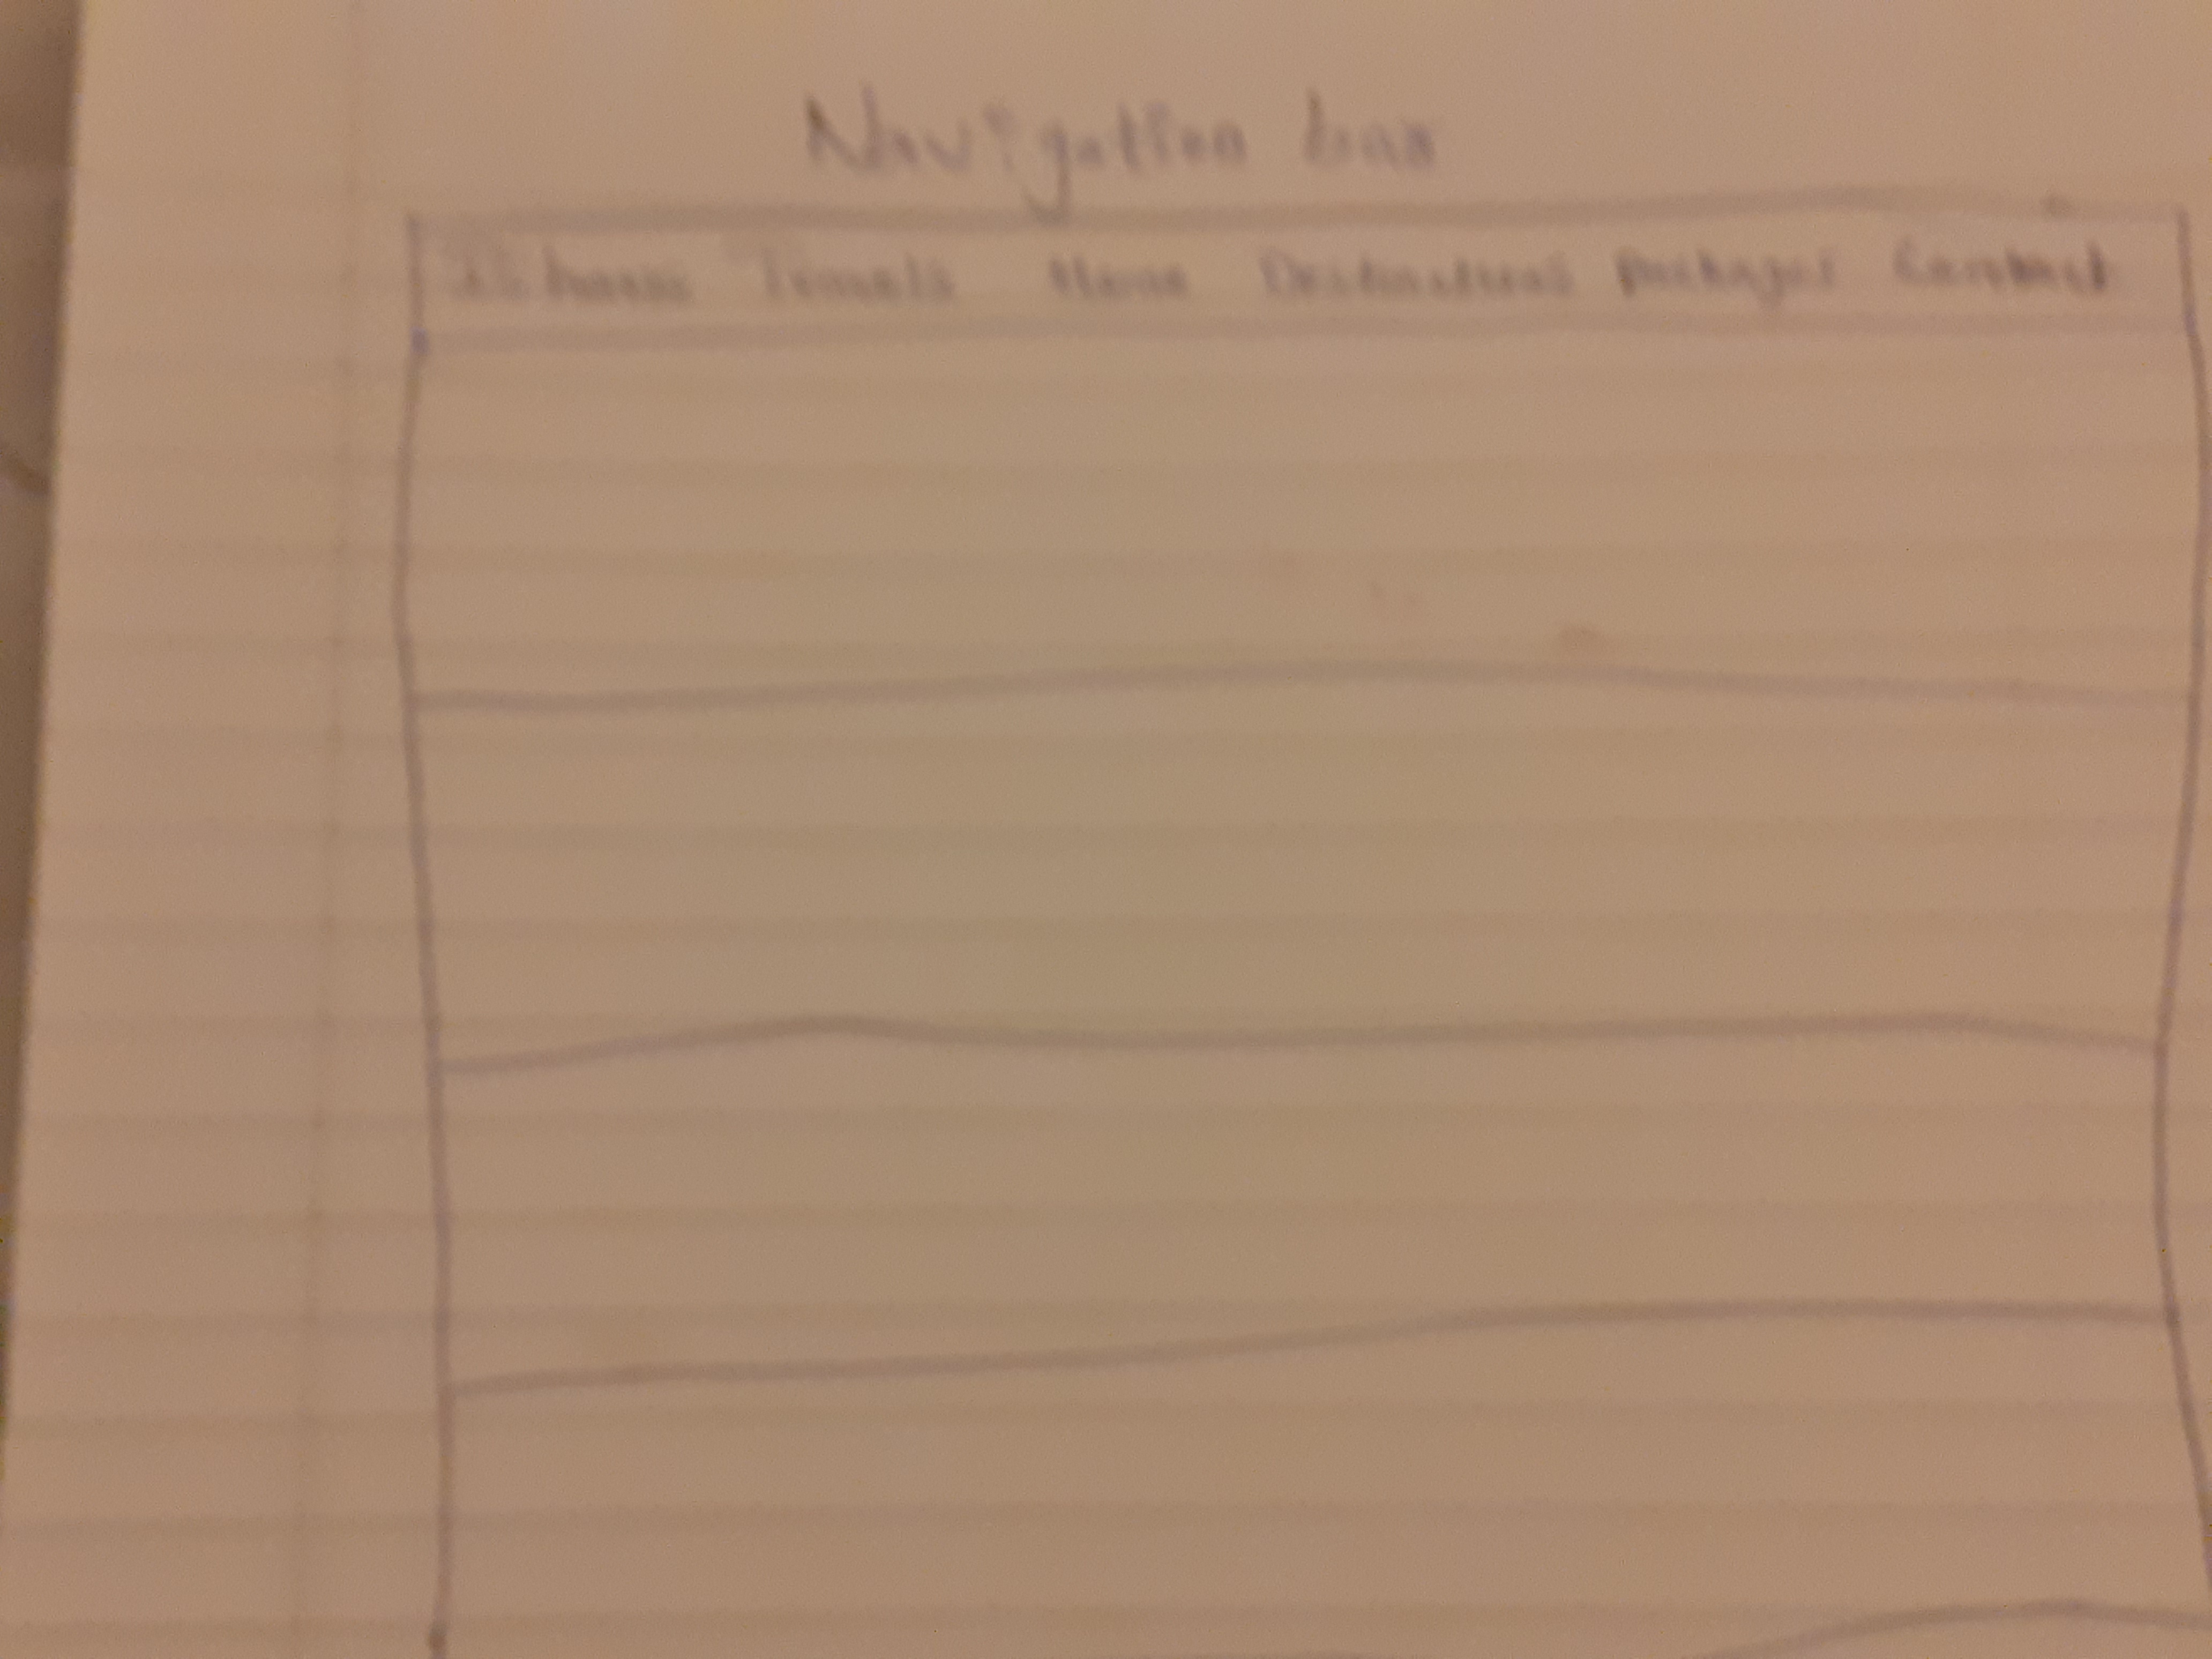 Navigation bar
Travels Home Destinations Packages Contact